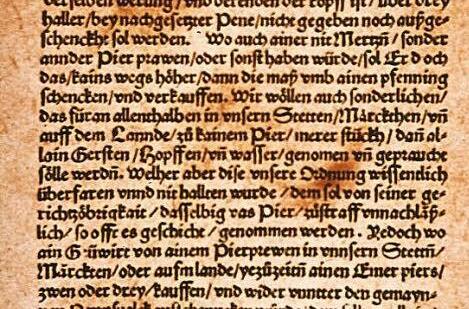 derselben werung / vnd derenden der kopff ist / über drey
haller / bey nachgesetzter Pene / nicht gegeben noch außge-
schenckht sol werden. Wo auch ainer nit Mertzn̄ / sonder
annder Pier prawen / oder sonst haben würde / sol Er doch
das / kains wegs höher / dann die maß vmb ainen pfenning
schencken / vnd verkauffen. Wir wöllen auch sonderlichen /
das für an allenthalben in vnsern Stetten / Märckthen / vn̄
auff dem Lannde / zů kainem Pier / merer stückh / dan̄ al-
lain Gersten / Hopffen / vn̄ wasser / genomen vn̄ geprauche
sölle werdn̄. Welher aber dise vnsere Ordnung wissendlich
überfaren vnnd nit hallten wurde / dem sol von seiner ge-
richtzöbrigkait / dasselbig vas Pier / zůstraff vnnachläß-
lich / so offt es geschiche / genommen werden. Yedoch wo
ain G üwirt von ainem Pierprewen in vnnsern Stettn̄ /
Märckten / oder aufm lande / yezůzeitn̄ ainen Emer piers /
zwen oder drey / kauffen / vnd wider vnntter den gemayn-